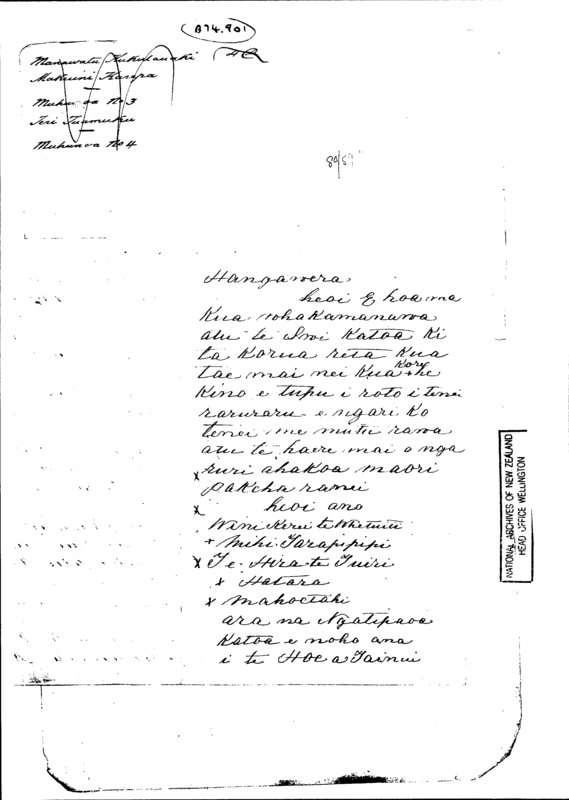 B74.901
Manawatu Kukutauaki 4E
Makuini Karepa
Muhunoa No 3
Teri Tuamuku
Muhunoa No 4
Hangawera
heoi E hoa ma
Kua whakamanawa
atu te Iwi Katoa Ki
ta Korua reta Kua
tae mai nei Kua Kore he
Kino e tupu i roto i tenei
raruraru e ngari Ko
tenei me mutu rawa
atu te haere mai o nga
x ruri ahakoa maori
pakeha ranei
x heoi ano
Wini Kerei te Whetuiti
+ mihi Tarapipipi
x Te Hira te Tuiri
x Hatara
x mahoetahi
ara na Ngatipaoa
Katoa e noho ana
i te Hoe a Tainui
NATIONAL ARCHIVES OF NEW ZEALAND
HEAD OFFICE WELLINGTON